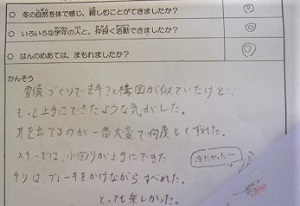 ○ 冬の自然を体で感じ、親しむことができましたか?
○ いろいろな学年の人と、仲良く活動できましたか?
○ はんのめあては、まもれましたか?
かんそう
雪像づくりで去年と構図が似ていたけど、
もっと上手にできたような気がした。
耳を立てるのが一番大変で何度もくずれた。
スキーでは、小回りが上手にできた
ブレーキをかけながらすべれた。
とっても楽しかった。
冷たかった〜